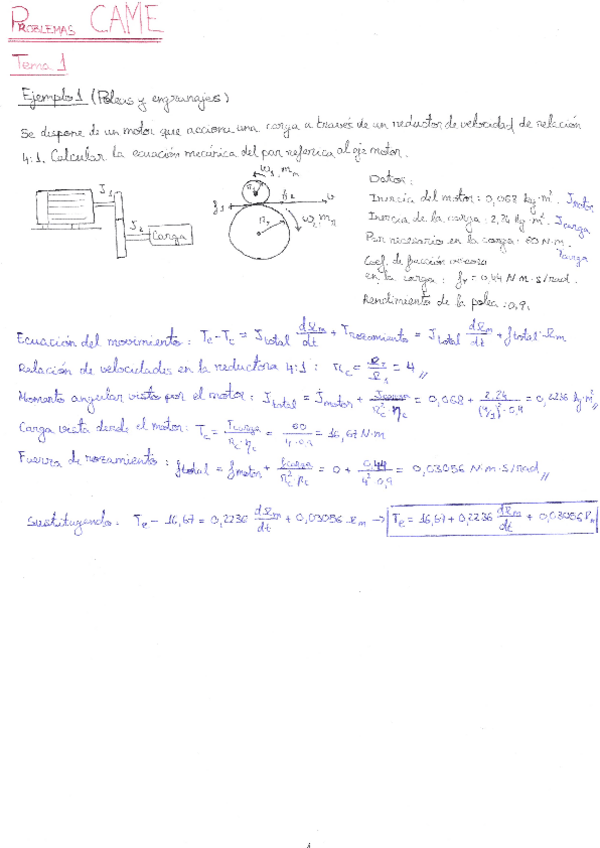 PROBLEMAS CAME
Tema 1
Ejemplo 1 (Poleas y engranajes)
Se dispone de un motor que acciona una carga a través de un reductor de velocidad de relación
4:1. Calcular la ecuación mecánica del par referida al eje motor.
J1
J2
Carga
Datos:
Inercia del motor: 0,068 kg·m². Jmotor
Inercia de la carga: 2,24 kg·m². Jcarga
Par necesario en la carga: 60 N·m. Tcarga
Coef. de fricción viscosa
en la carga: fr = 0,44 N·m·s/rad.
Rendimiento de la polea: 0,9.
Ecuación del movimiento: Te - Tc = Jtotal dΩm/dt + Trozamiento = Jtotal dΩm/dt + ftotal·Ωm
Relación de velocidades en la reductora 4:1: = 4
Momento angular visto por el motor: Jtotal = Jmotor + Jcarga/rc²·ηc = 0,068 + = 0,2236 kg·m²
Carga vista desde el motor: Tc = Tcarga/rc·ηc = 60/4·0,9 = 16,67 N·m
Fuerza de rozamiento: ftotal = fmotor + fcarga/rc²·ηc = 0 + 0,44/4²·0,9 = 0,03056 N·m·s/rad
Sustituyendo: Te - 16,67 = 0,2236 dΩm/dt + 0,03056 Ωm → Te = 16,67 + 0,2236 dΩm/dt + 0,03056 Ωm